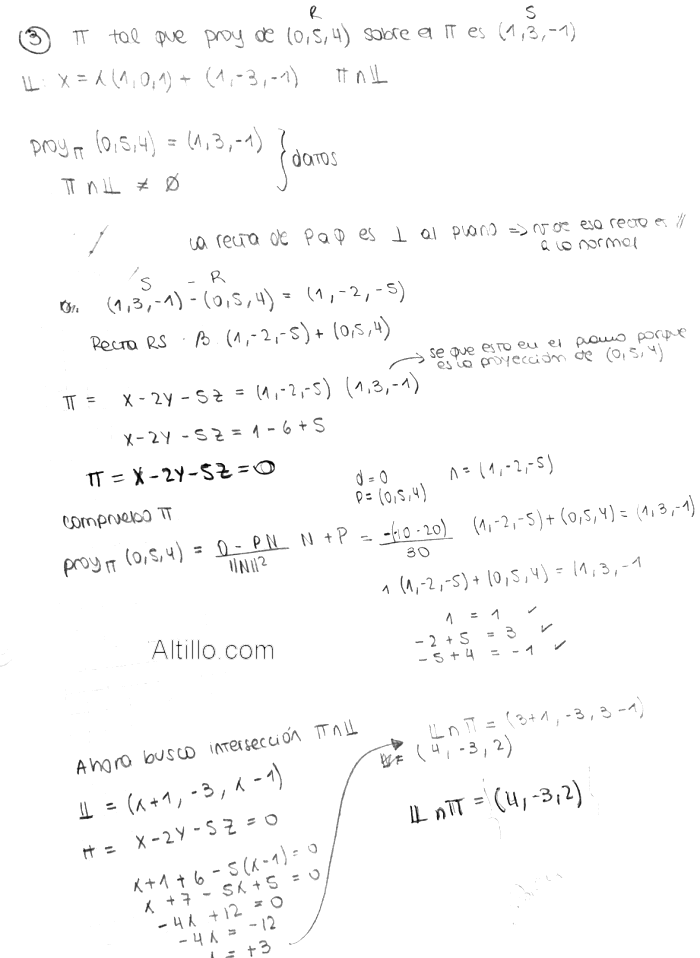 R S
③ π tal que proy de (0,5,4) sobre el π es (1,3,-1)
𝕃: X = λ(1,0,1) + (1,-3,-1) π∩𝕃
proy π (0,5,4) = (1,3,-1) } datos
π∩𝕃 ≠ Ø
La recta de P a Q es ⊥ al plano ⇒ v de esa recta es //
a la normal
S - R
(1,3,-1) - (0,5,4) = (1,-2,-5)
Recta RS : β (1,-2,-5) + (0,5,4)
se que esto en el plano porque
es la proyección de (0,5,4)
π = x-2y-5z = (1,-2,-5) (1,3,-1)
x-2y-5z = 1-6+5
π = x-2y-5z = 0
d=0 n = (1,-2,-5)
P = (0,5,4)
compruebo π
proy π (0,5,4) = D - PN / ||N||² N + P = -(-10-20) / 30 (1,-2,-5)+(0,5,4) = (1,3,-1)
1 (1,-2,-5) + (0,5,4) = (1,3,-1
1 = 1 ✓
-2+5 = 3 ✓
-5+4 = -1 ✓
Altillo.com
Ahora busco intersección π∩𝕃
𝕃 = (λ+1, -3, λ-1)
π = x-2y-5z = 0
λ+1+6-5(λ-1) = 0
λ+7-5λ+5 = 0
-4λ+12 = 0
-4λ = -12
λ = +3
𝕃∩π = (3+1, -3, 3-1)
(4, -3, 2)
𝕃∩π = (4,-3,2)